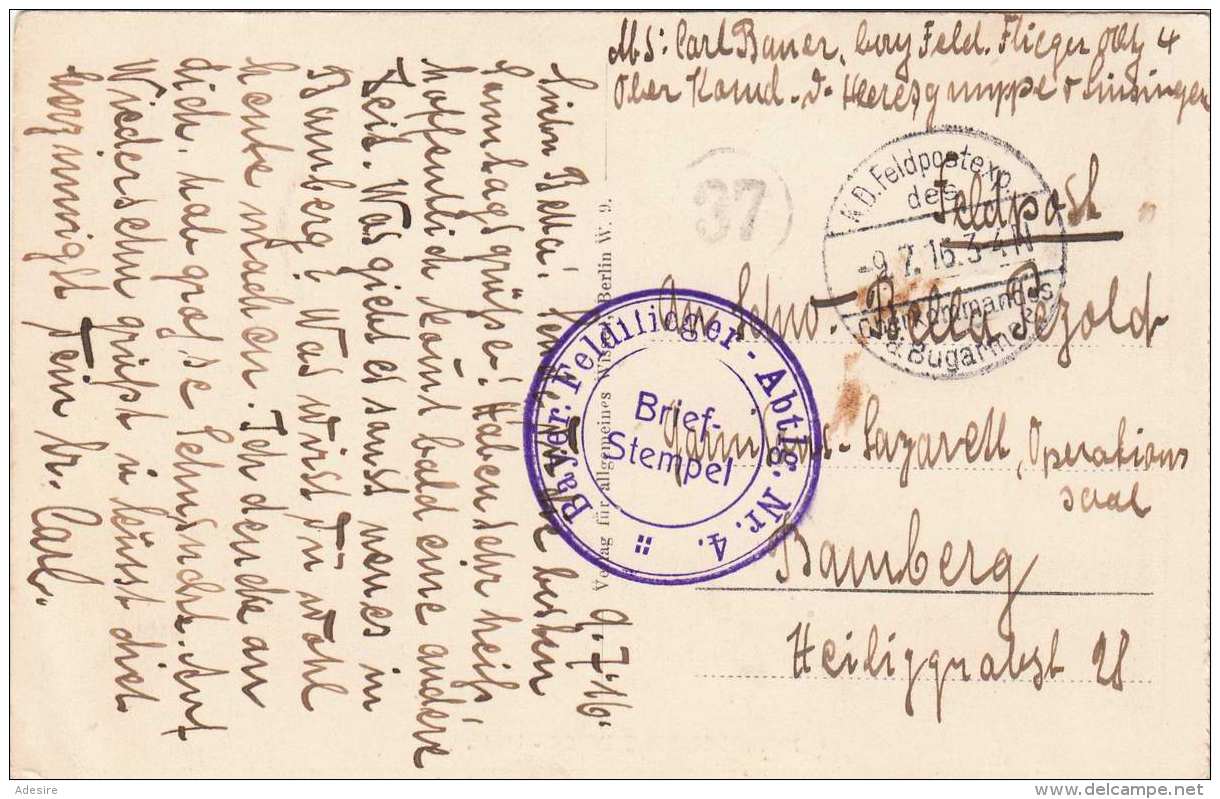 Abs: Carl Bauer, bay Feld. Flieger Abtg 4
Ober Komd. d. Heeresgruppe v Linsingen
Feldpost
K.D. Feldpostexp.
des
-9.7.16. 3-4 N
Oberkommandos
d. Bugarmee
37
An Schw. Bella Pezold
Garnisons-Lazarett, Operations
saal
Bamberg
Heiliggrabst 28
Bayer. Feldflieger-Abtlg. Nr. 4.
Brief-
Stempel
Verlag für allgemeines Wissen Berlin W. 9.
9.7.16.
Liebe Bella! besten
Sonntagsgrüße! Haben sehr heiß,
hoffentlich kommt bald eine andere
Zeit. Was giebt es sonst neues in
Bamberg? Was wirst Du wohl
heute machen. Ich denke an
dich, hab grosse Sehnsucht. Auf
Wiedersehn grüßt u küsst dich
herzinnigst Dein br. Carl.
Adesire
delcampe.net